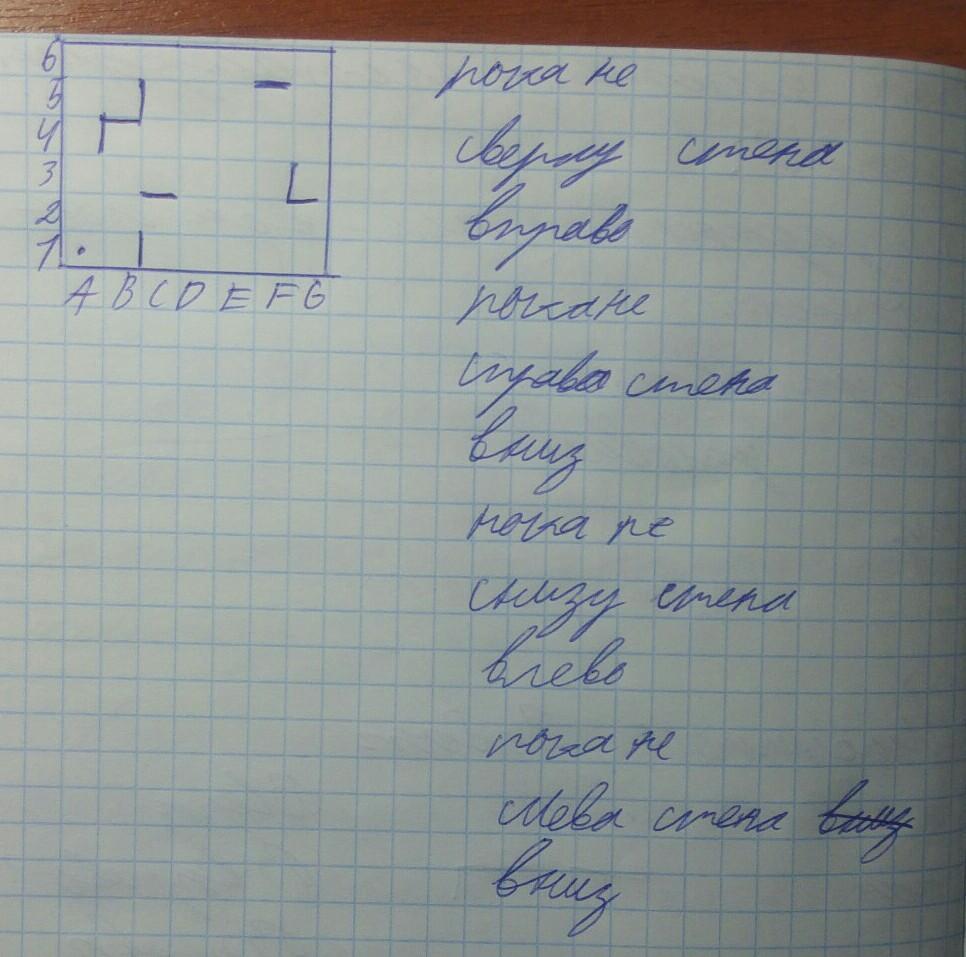 6
5
4
3
2
1
A B C D E F G
пока не
сверху стена
вправо
пока не
справа стена
вниз
пока не
снизу стена
влево
пока не
слева стена вниз
вниз